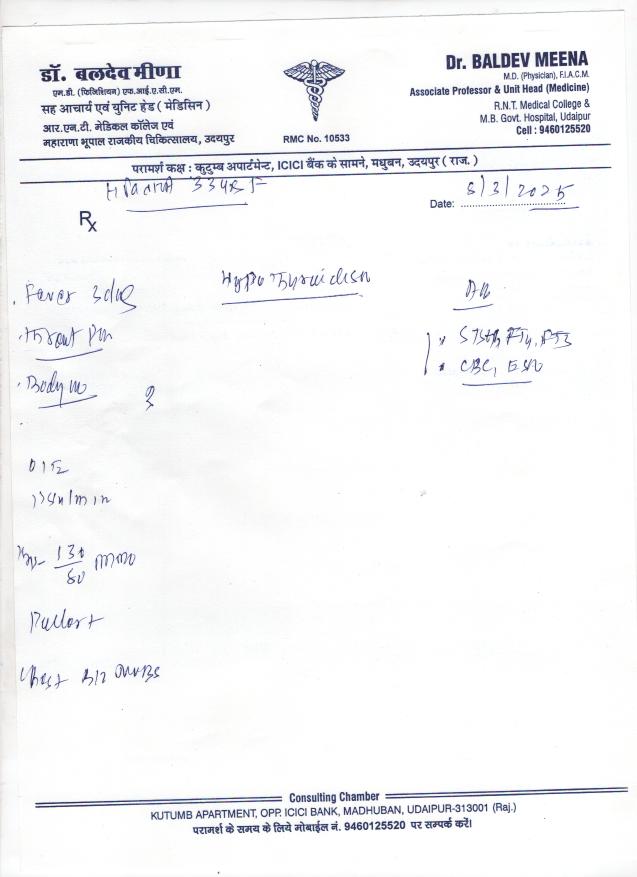 डॉ. बलदेव मीणा
एम.डी. (फिजिशियन) एफ.आई.ए.सी.एम.
सह आचार्य एवं युनिट हेड ( मेडिसिन )
आर.एन.टी. मेडिकल कॉलेज एवं
महाराणा भूपाल राजकीय चिकित्सालय, उदयपुर
RMC No. 10533
Dr. BALDEV MEENA
M.D. (Physician), F.I.A.C.M.
Associate Professor & Unit Head (Medicine)
R.N.T. Medical College &
M.B. Govt. Hospital, Udaipur
Cell : 9460125520
परामर्श कक्ष : कुटुम्ब अपार्टमेन्ट, ICICI बैंक के सामने, मधुबन, उदयपुर ( राज. )
Rx
Date: 5/3/2025
Fever 3 days
Throat Pain
Body
Hypo Thyroidism
CBC, ESR
O/E
130/80
Pallor +
Chest B/L
Consulting Chamber
KUTUMB APARTMENT, OPP. ICICI BANK, MADHUBAN, UDAIPUR-313001 (Raj.)
परामर्श के समय के लिये मोबाईल नं. 9460125520 पर सम्पर्क करें।